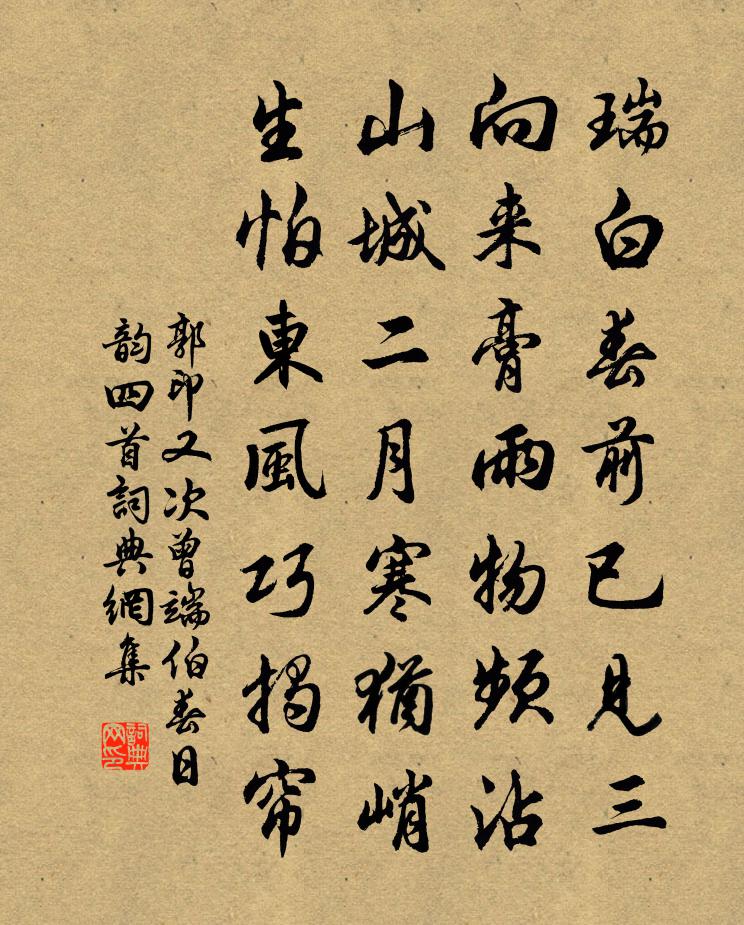 瑞白春前已见三
向来膏雨物频沾
山城二月寒猶峭
生怕東風巧揭帘
郭印又次曾端伯春日
韵四首詞典網集
詞典
网印